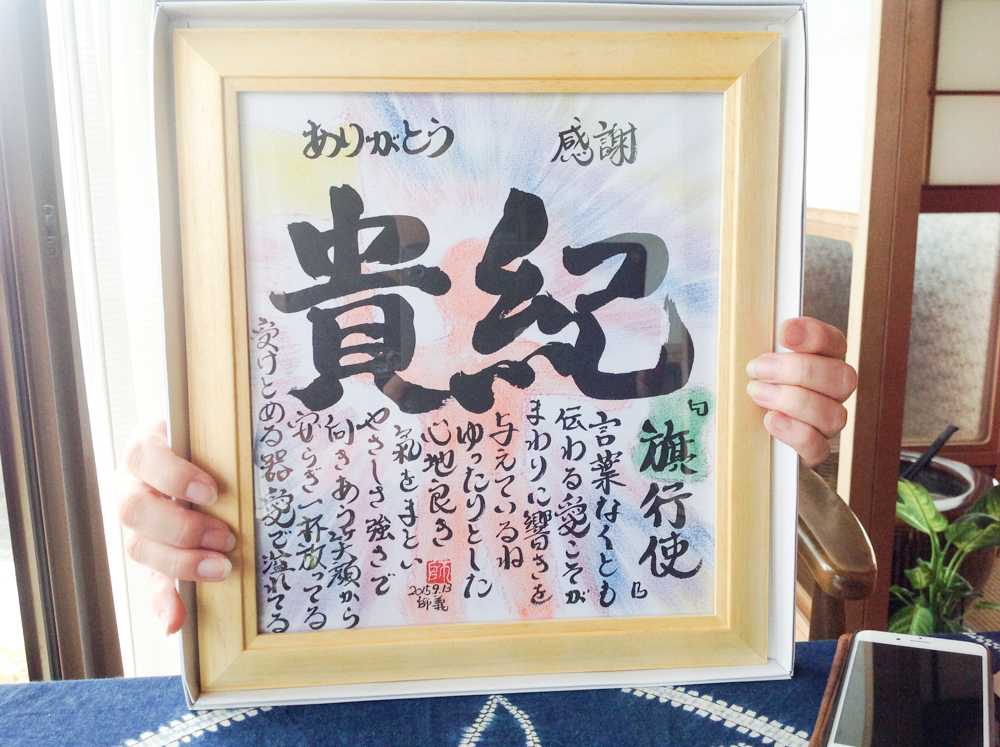 ありがとう
感謝
貴紀
「旗行使」
言葉なくとも
伝わる愛こそが
まわりに響きを
与えているね
ゆったりとした
心地良き
氣をまとい
やさしさ強さで
向きあう笑顔から
安らぎ一杯放ってる
受けとめる器愛で溢れてる
2015.9.13
師義